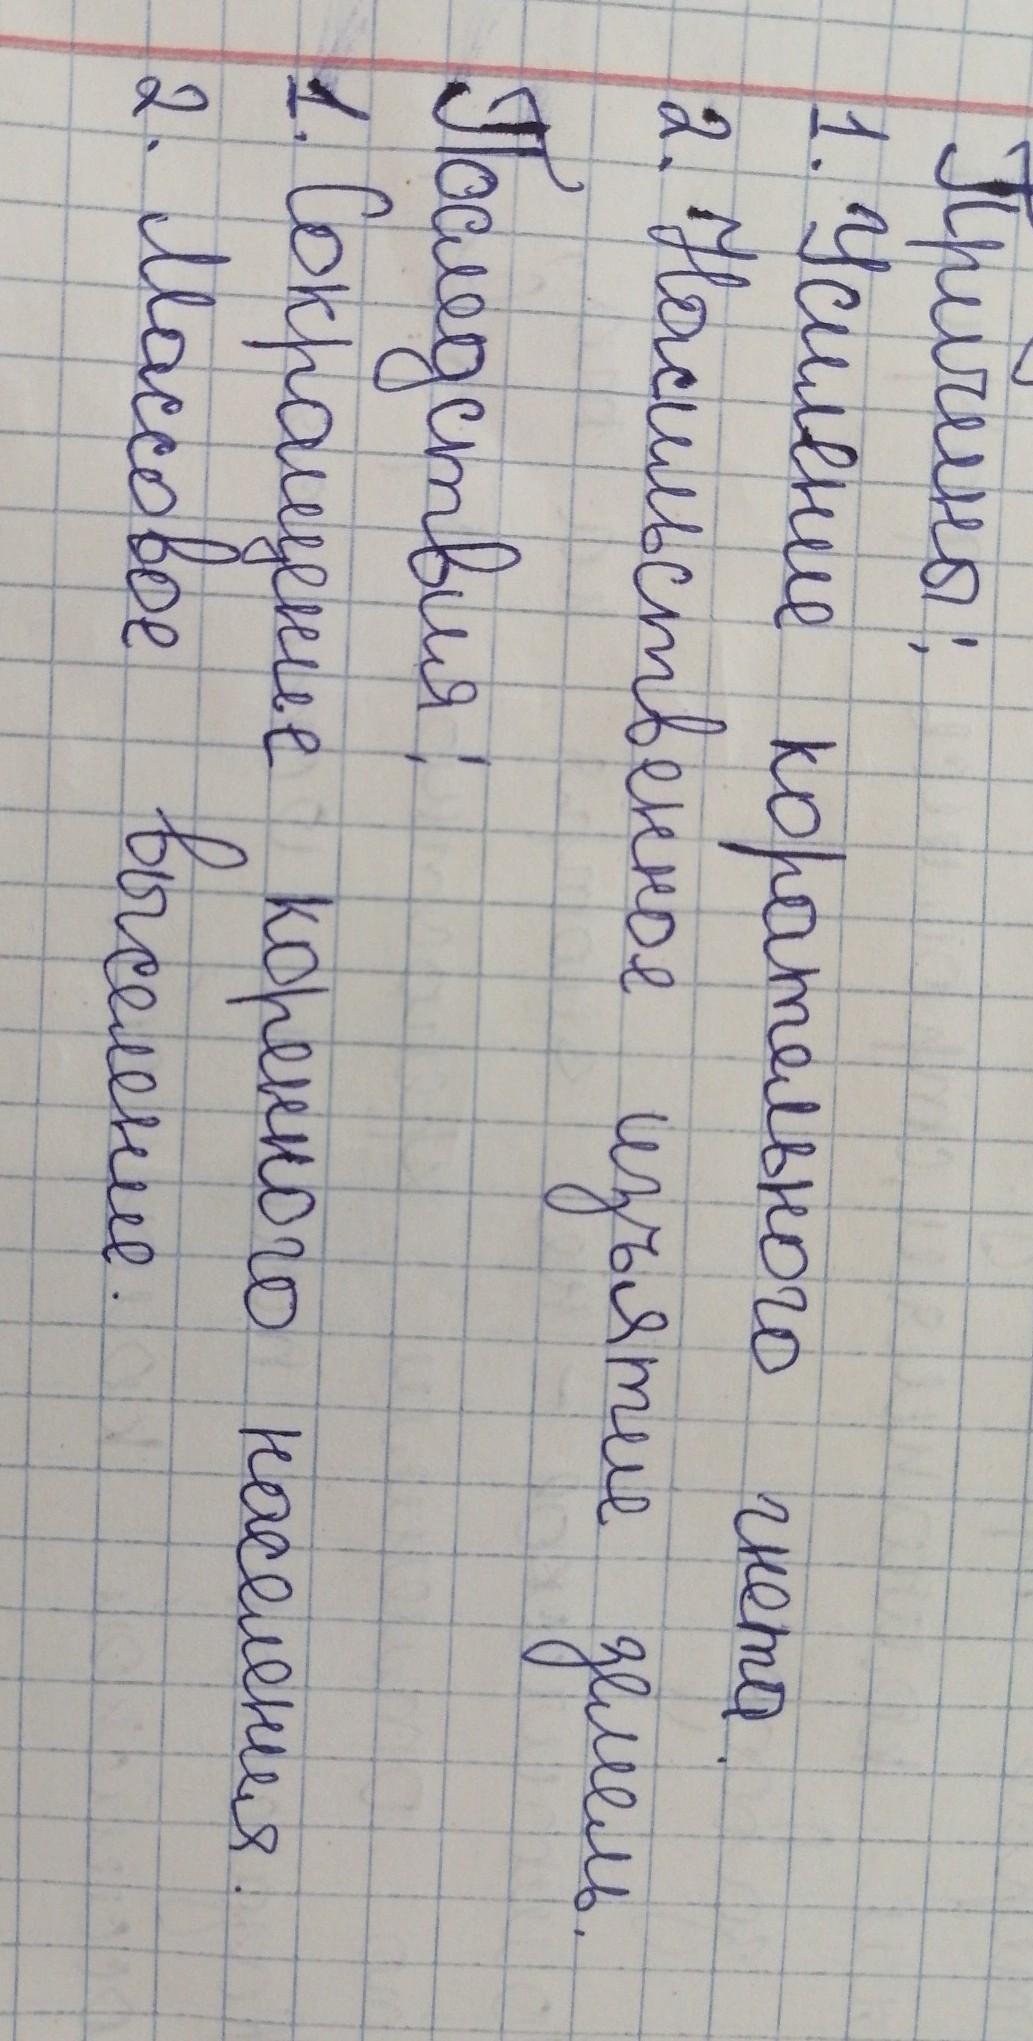 Причины;
1. Усиление корательного гнета.
2. Насильственное изъятие земель.
Последствия;
1. Сокращение коренного населения.
2. Массовое выселение.